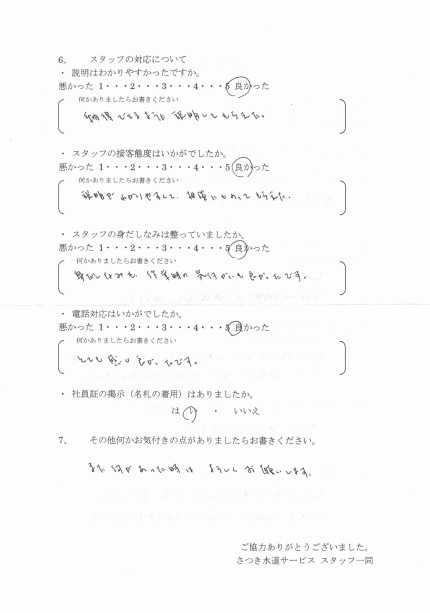 6、 スタッフの対応について
・ 説明はわかりやすかったですか。
悪かった 1・・・2・・・3・・・4・・・5 良かった
何かありましたらお書きください
納得できるように 説明してもらえた。
・ スタッフの接客態度はいかがでしたか。
悪かった 1・・・2・・・3・・・4・・・5 良かった
何かありましたらお書きください
説明が わかりやすくて、相談にのってもらえた。
・ スタッフの身だしなみは整っていましたか。
悪かった 1・・・2・・・3・・・4・・・5 良かった
何かありましたらお書きください
身だしなみも、作業時の気付かいも良かったです。
・ 電話対応はいかがでしたか。
悪かった 1・・・2・・・3・・・4・・・5 良かった
何かありましたらお書きください
とても 感じ 良かったです。
・ 社員証の掲示（名札の着用）はありましたか。
はい ・ いいえ
7、 その他何かお気付きの点がありましたらお書きください。
また何かあった時は よろしくお願いします。
ご協力ありがとうございました。
さつき水道サービス スタッフ一同